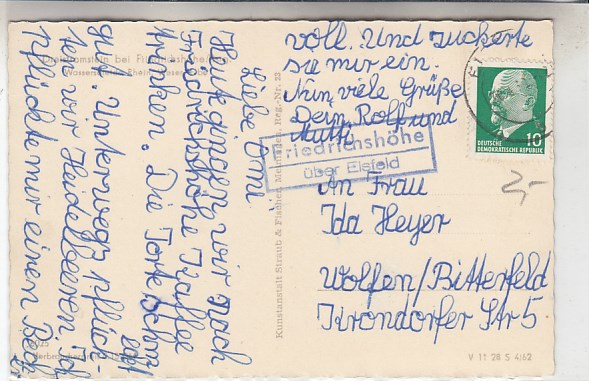 Dreistromstein bei Friedrichshöhe
Wasserscheide Rhein, Weser
Liebe Omi,
Heute gingen wir nach
Friedrichshöhe Kaffee
trinken. Die Torte schm.
gut. Unterwegs pflück-
ten wir Heidelbeeren. Ich
pflückte mir einen Bech
er
voll. Und zuckerte
sie mir ein.
Nun, viele Grüße
Dein, Rolf und
Mutti
Friedrichshöhe
über Eisfeld
10
DEUTSCHE
DEMOKRATISCHE REPUBLIK
2,-
An Frau
Ida Heyer
Wolfen/Bitterfeld
Kunstanstalt Straub & Fischer, Meiningen, Reg.-Nr. 22
V 11 28 S 4/62